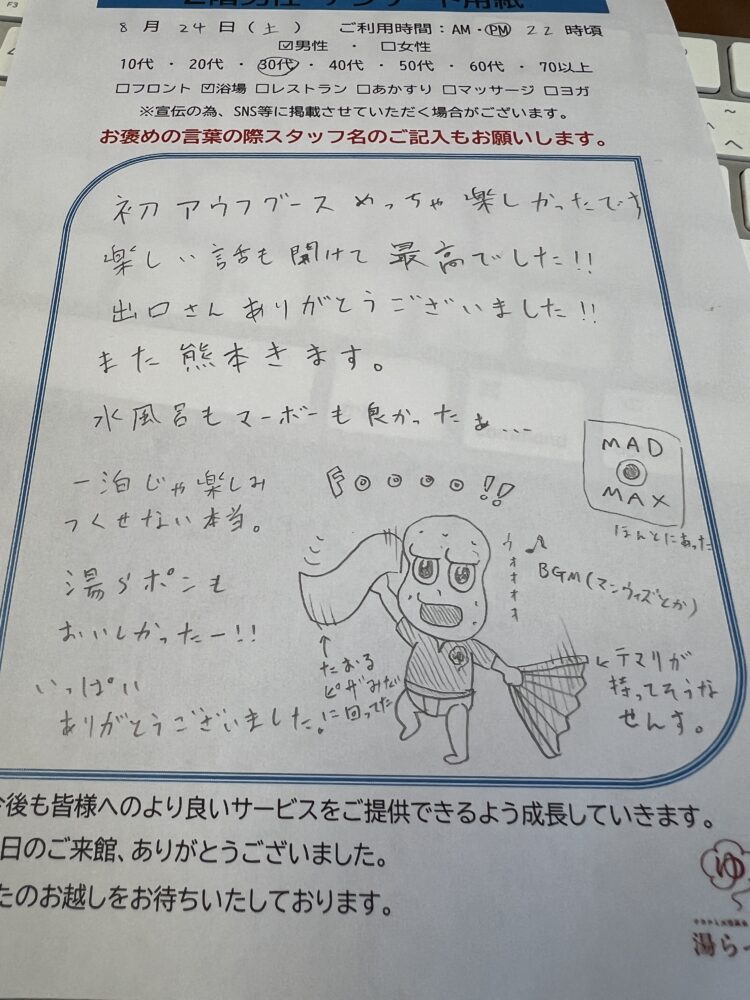 2階男性 アンケート用紙
8月 24日(土) ご利用時間:AM・PM 22時頃
☑男性 ・ □女性
10代 ・ 20代 ・ 30代 ・ 40代 ・ 50代 ・ 60代 ・ 70以上
□フロント ☑浴場 □レストラン □あかすり □マッサージ □ヨガ
※宣伝の為、SNS等に掲載させていただく場合がございます。
お褒めの言葉の際スタッフ名のご記入もお願いします。
初アウフグース めっちゃ 楽しかったです
楽しい話も聞けて 最高でした!!
出口さんありがとうございました!!
また熊本きます。
水風呂もマーボーも良かったぁ...
一泊じゃ楽しみ
つくせない本当。
湯らポンも
おいしかったー!!
いっぱい
ありがとうございました。
MAD
MAX
ほんとにあった
ウォオオオオ
♪
BGM(マンウィズとか)
↑
たおる
ピザみたい
に回ってた
←テマリが
持ってそうな
せんす。
今後も皆様へのより良いサービスをご提供できるよう成長していきます。
日のご来館、ありがとうございました。
たのお越しをお待ちいたしております。
ゆ
湯ら